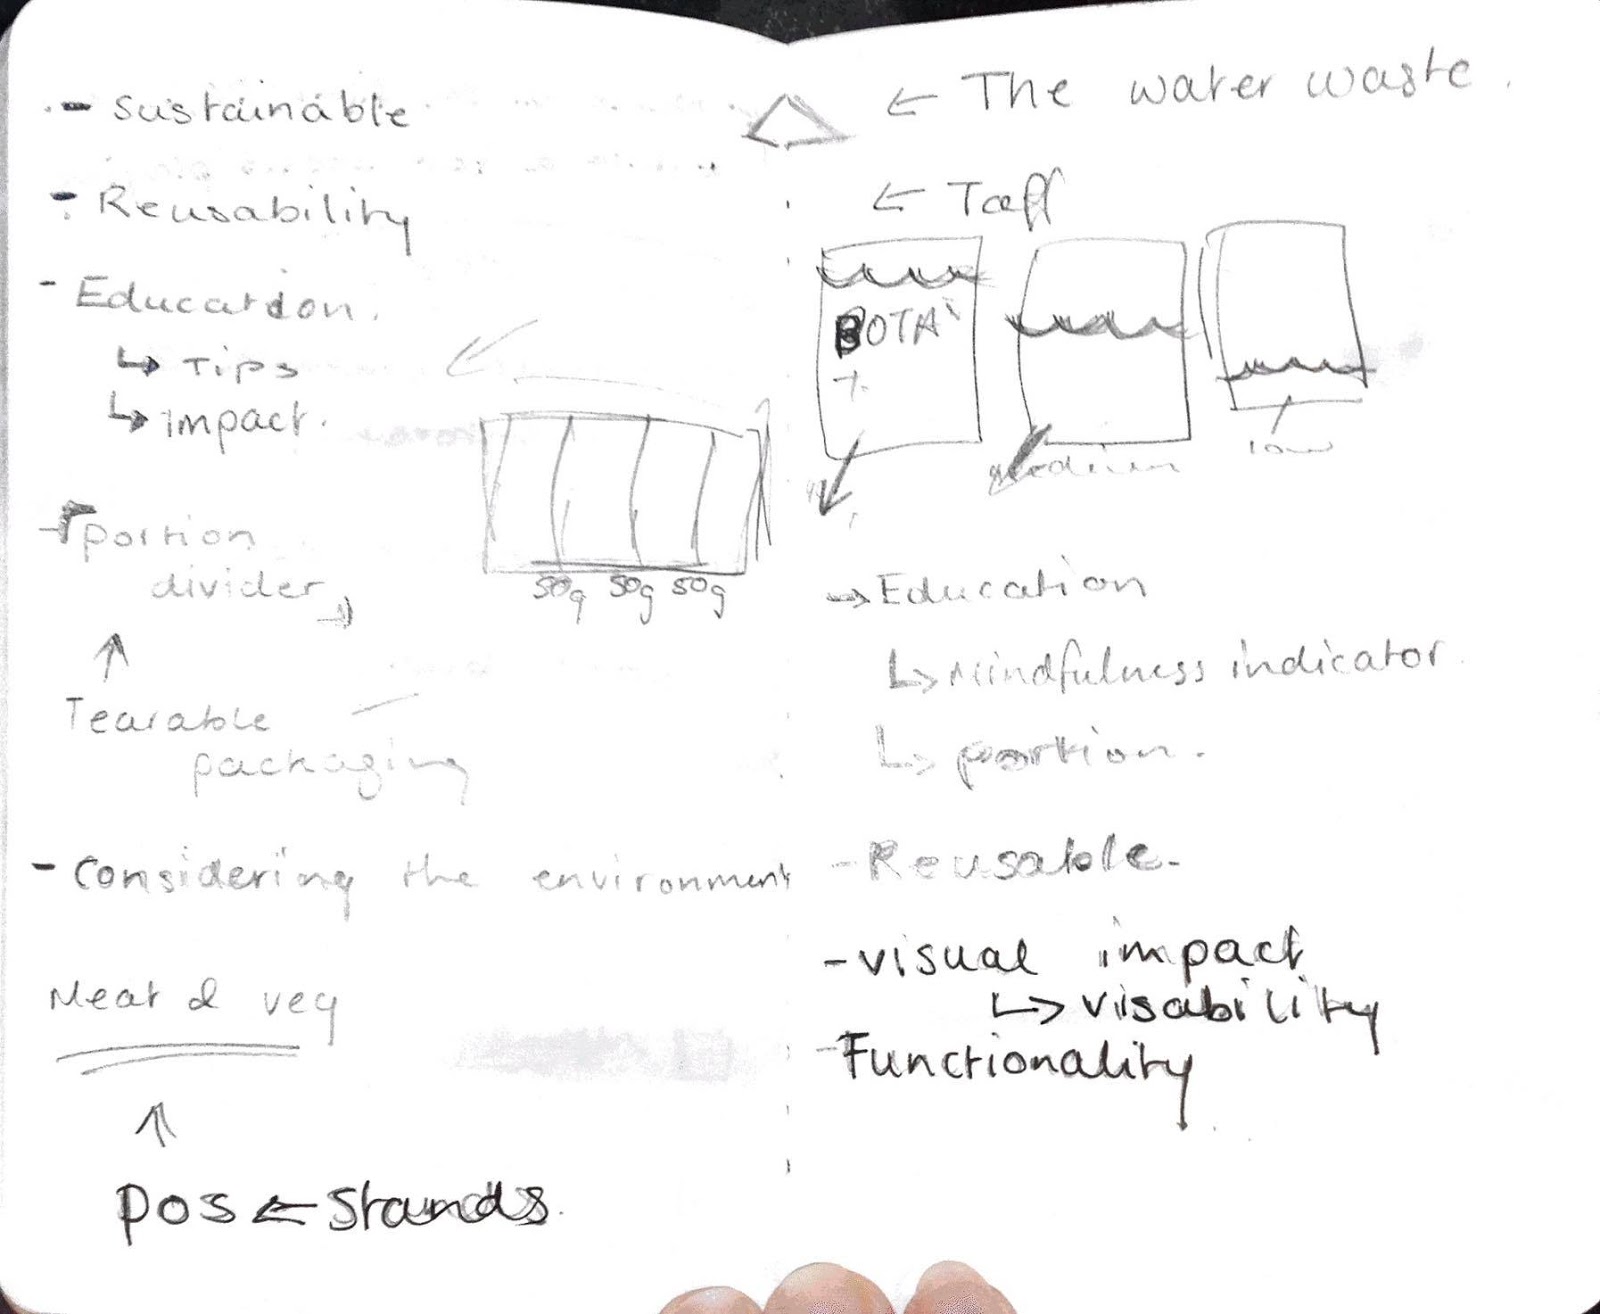 - Sustainable
- Reusability
- Education.
↳ Tips
↳ impact.
- portion
divider
Tearable
packaging
50g 50g 50g
- Considering the environment
Meat & veg
pos ← Stands.
← The water waste.
←
BOTA
medium
low
→ Education
↳ Mindfulness indicator
↳ portion.
- Reusable.
- visual impact
↳ visability
- Functionality